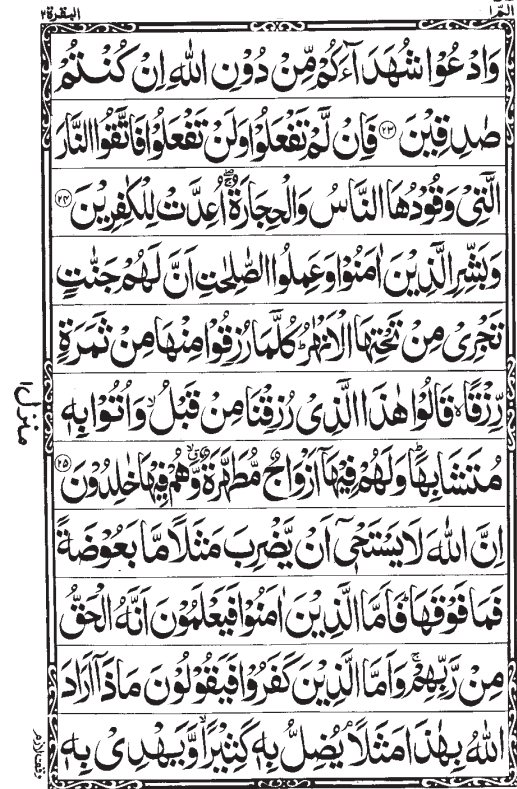 الٓمّٓ ١
البقرة ٢
وَادْعُوْا شُهَدَآءَكُمْ مِّنْ دُوْنِ اللّٰهِ اِنْ كُنْتُمْ
صٰدِقِيْنَ ﴿۲۳﴾ فَاِنْ لَّمْ تَفْعَلُوْا وَلَنْ تَفْعَلُوْا فَاتَّقُوا النَّارَ
الَّتِيْ وَقُوْدُهَا النَّاسُ وَالْحِجَارَةُ ۖۚ اُعِدَّتْ لِلْكٰفِرِيْنَ ﴿۲۴﴾
وَبَشِّرِ الَّذِيْنَ اٰمَنُوْا وَعَمِلُوا الصّٰلِحٰتِ اَنَّ لَهُمْ جَنّٰتٍ
تَجْرِيْ مِنْ تَحْتِهَا الْاَنْهٰرُ ؕ كُلَّمَا رُزِقُوْا مِنْهَا مِنْ ثَمَرَةٍ
رِّزْقًا ۙ قَالُوْا هٰذَا الَّذِيْ رُزِقْنَا مِنْ قَبْلُ ۙ وَاُتُوْا بِهٖ
مُتَشَابِهًا ؕ وَلَهُمْ فِيْهَآ اَزْوَاجٌ مُّطَهَّرَةٌ ۙ وَّهُمْ فِيْهَا خٰلِدُوْنَ ﴿۲۵﴾
اِنَّ اللّٰهَ لَا يَسْتَحْيٖٓ اَنْ يَّضْرِبَ مَثَلًا مَّا بَعُوْضَةً
فَمَا فَوْقَهَا ؕ فَاَمَّا الَّذِيْنَ اٰمَنُوْا فَيَعْلَمُوْنَ اَنَّهُ الْحَقُّ
مِنْ رَّبِّهِمْ ۚ وَاَمَّا الَّذِيْنَ كَفَرُوْا فَيَقُوْلُوْنَ مَاذَآ اَرَادَ
اللّٰهُ بِهٰذَا مَثَلًا ۘ يُضِلُّ بِهٖ كَثِيْرًا ۙ وَّيَهْدِيْ بِهٖ
منزل ١
وقف لازم